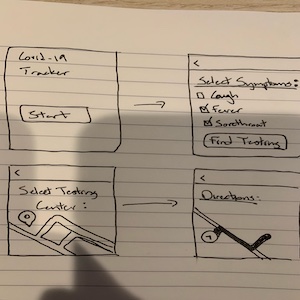 Covid-19
Tracker
Start
<
Select Symptoms:
Cough
Fever
Sorethroat
Find Testing
<
Select Testing
Center:
<
Directions: